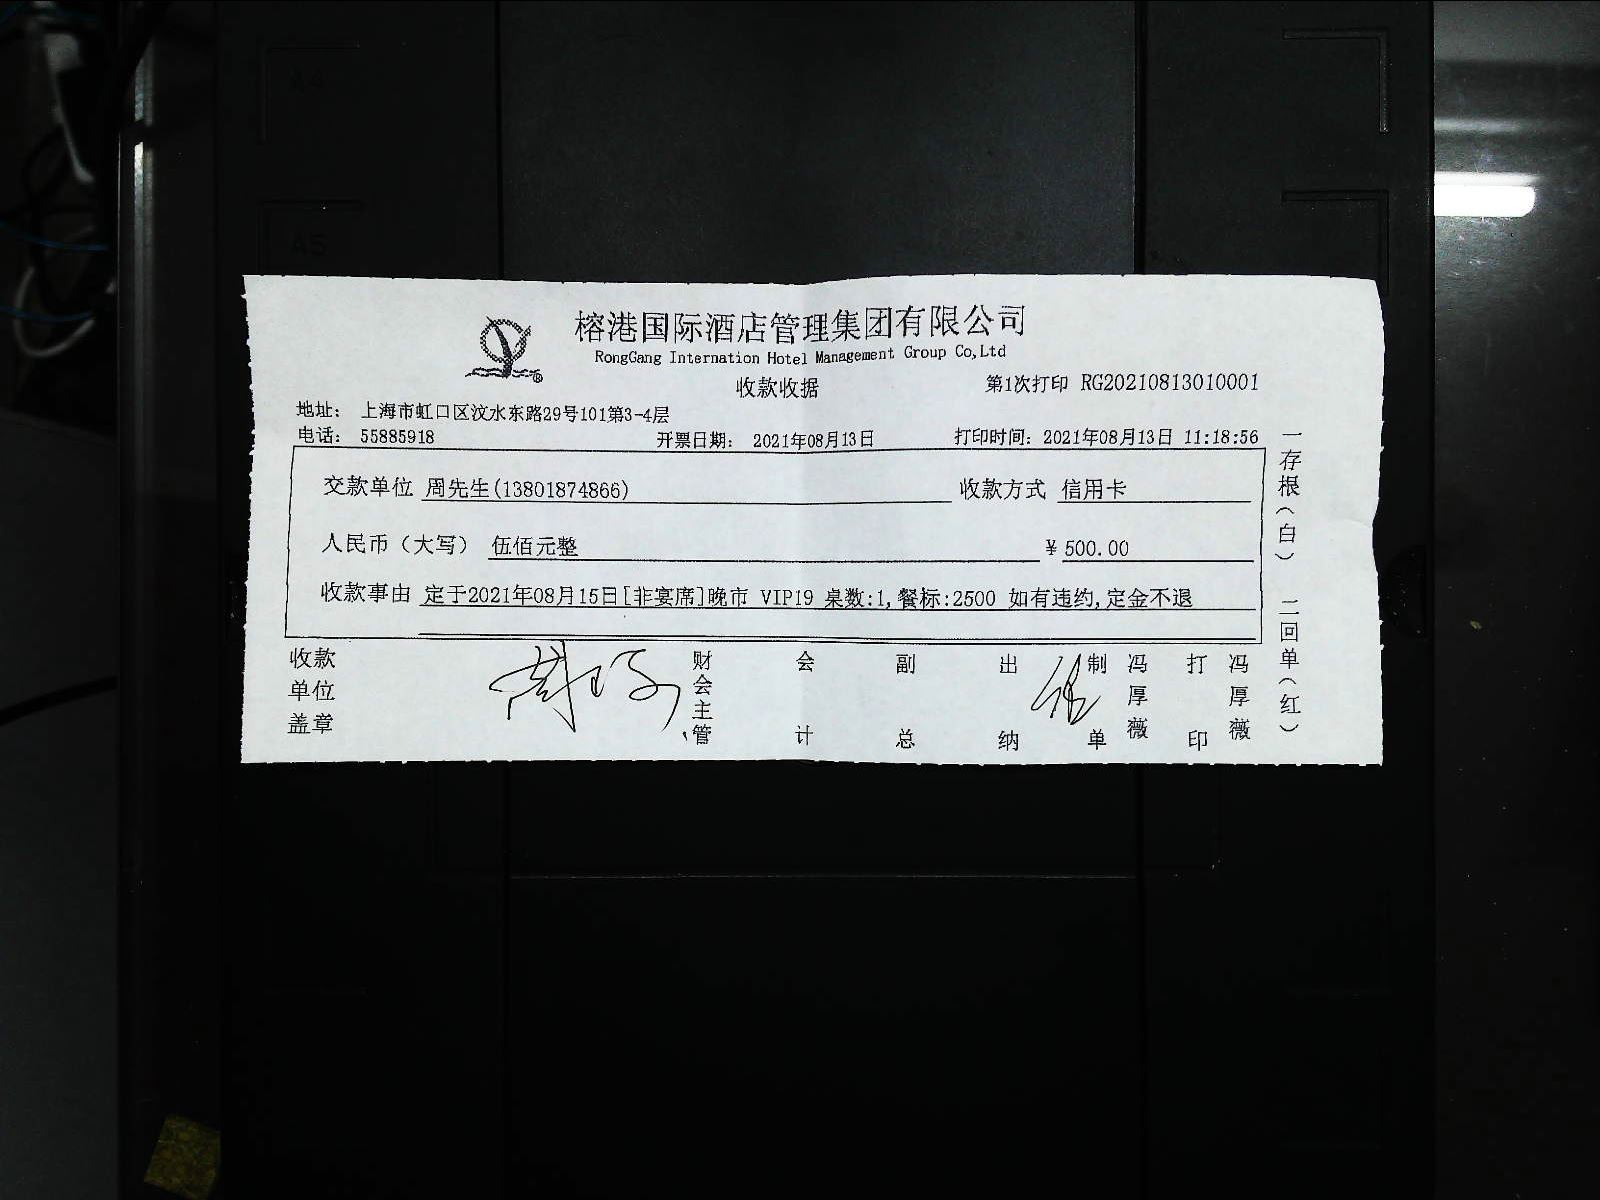 A4
A5
榕港国际酒店管理集团有限公司
RongGang Internation Hotel Management Group Co,Ltd
收款收据
第1次打印 RG20210813010001
地址： 上海市虹口区汶水东路29号101第3-4层
电话： 55885918 开票日期： 2021年08月13日 打印时间：2021年08月13日 11:18:56
交款单位 周先生(13801874866) 收款方式 信用卡
人民币（大写） 伍佰元整 ￥500.00
收款事由 定于2021年08月15日[非宴席]晚市 VIP19 桌数:1,餐标:2500 如有违约,定金不退
一存根（白） 二回单（红）
收款单位盖章
财会主管
会计
副总
出纳
制单 冯厚薇
打印 冯厚薇